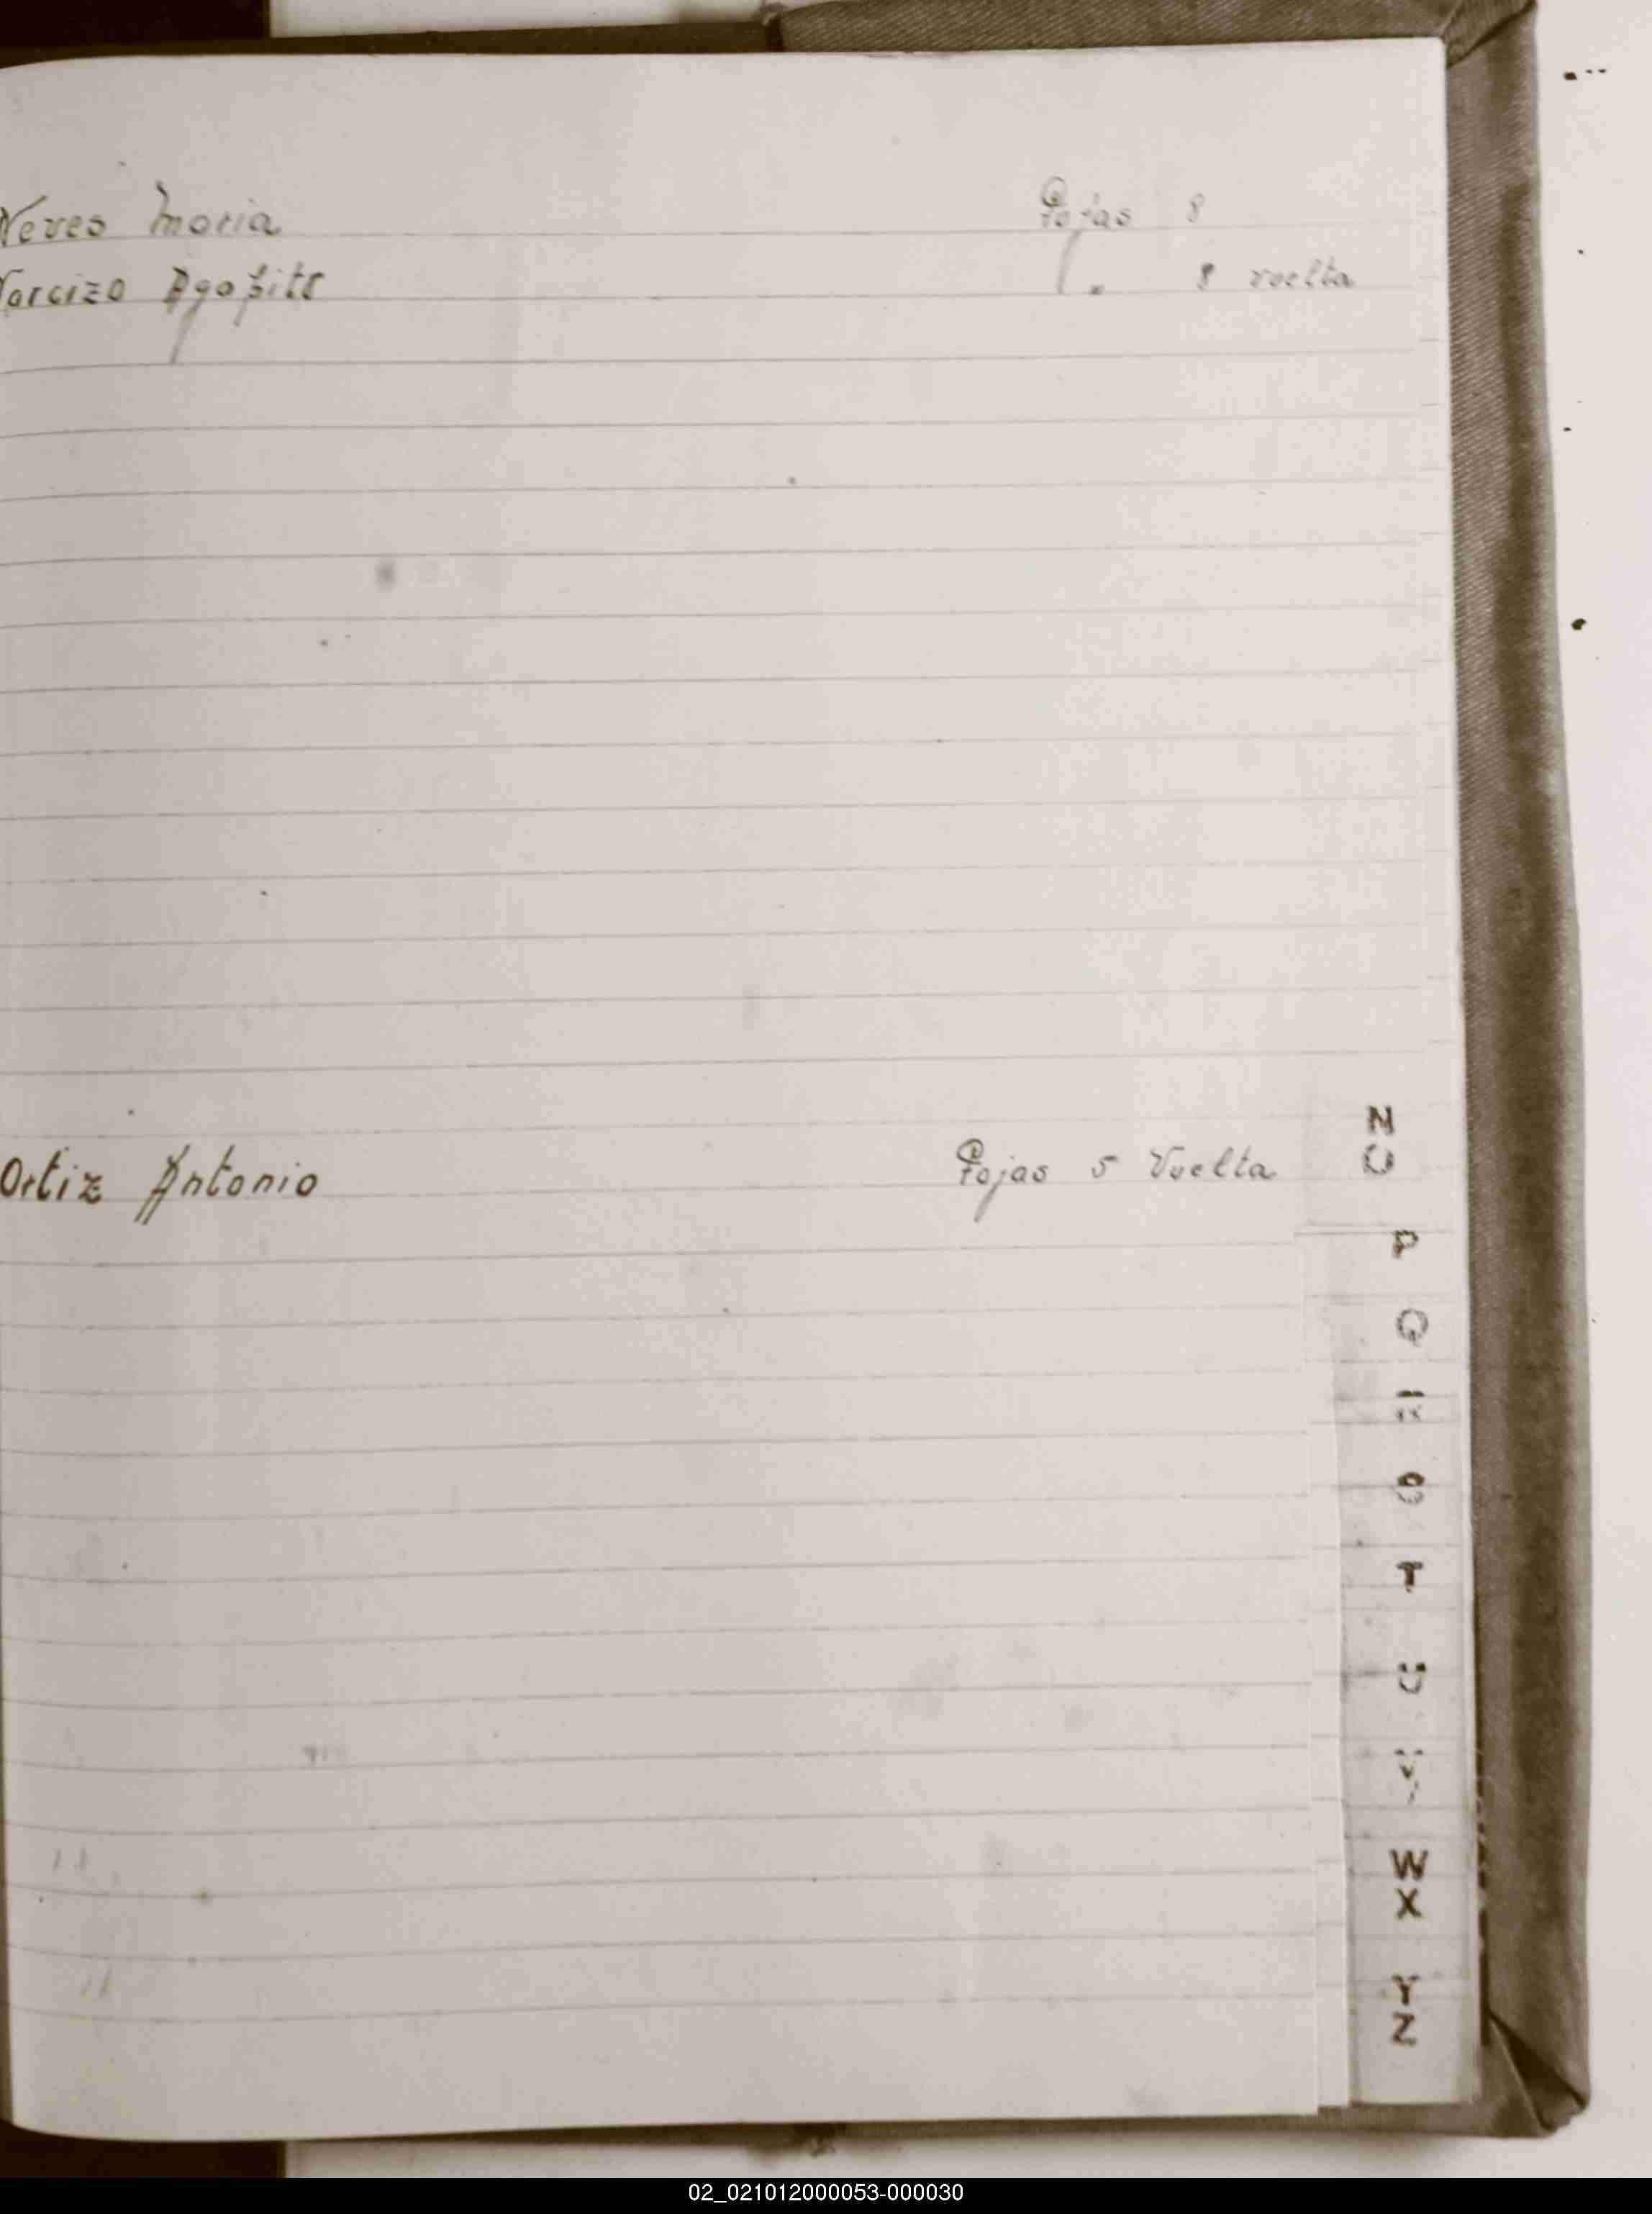 Neves Maria Fojas 8
Narcizo Agapito " 8 vuelta
N
O
Ortiz Antonio Fojas 5 Vuelta
P
Q
R
S
T
U
V
W
X
Y
Z
02_021012000053-000030